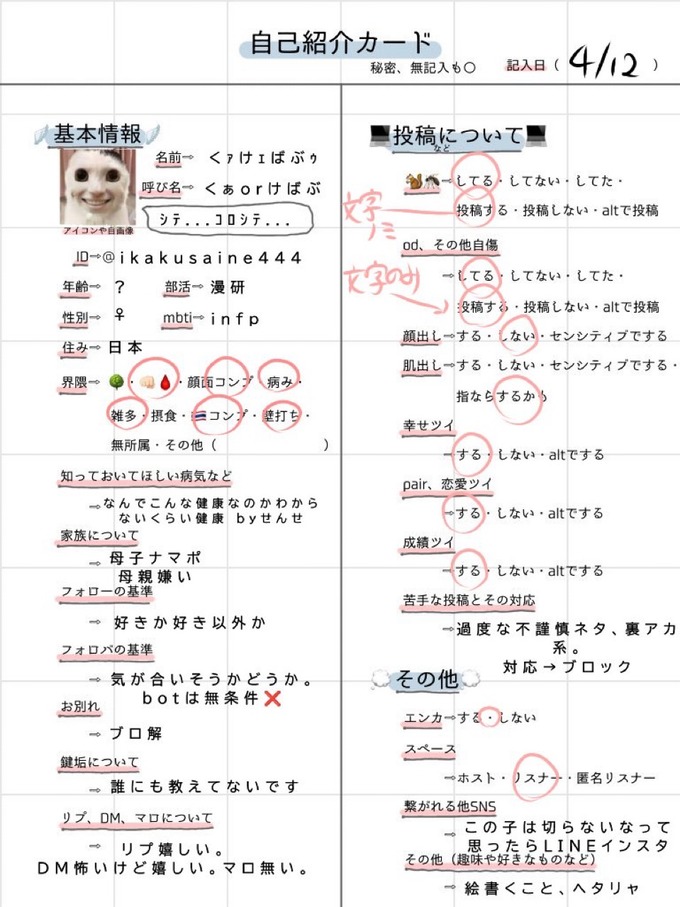 自己紹介カード
秘密、無記入も〇
記入日( 4/12 )
基本情報
名前⇨ くァけェばぶゥ
呼び名⇨ くぁorけばぶ
ｼﾃ...ｺﾛｼﾃ...
アイコンや自画像
ID⇨@ikakusaine444
年齢⇨ ? 部活⇨ 漫研
性別⇨ ♀ mbti⇨ infp
住み⇨ 日本
界隈⇨ 🌳・👊🏻🩸・顔面コンプ・病み・
雑多・摂食・🇹🇭コンプ・壁打ち・
無所属・その他( )
知っておいてほしい病気など
⇨なんでこんな健康なのかわから
ないくらい健康 byせんせ
家族について
⇨ 母子ナマポ
母親嫌い
フォローの基準
⇨ 好きか好き以外か
フォロバの基準
⇨ 気が合いそうかどうか。
botは無条件❌
お別れ
⇨ ブロ解
鍵垢について
⇨ 誰にも教えてないです
リプ、DM、マロについて
⇨ リプ嬉しい。
DM怖いけど嬉しい。マロ無い。
投稿について
など
🐿🦟⇨してる・してない・してた・
投稿する・投稿しない・altで投稿
文字
ノミ
od、その他自傷
⇨してる・してない・してた・
文字のみ
投稿する・投稿しない・altで投稿
顔出し⇨する・しない・センシティブでする
肌出し⇨する・しない・センシティブでする・
指ならするかも
幸せツイ
⇨する・しない・altでする
pair、恋愛ツイ
⇨する・しない・altでする
成績ツイ
⇨する・しない・altでする
苦手な投稿とその対応
⇨過度な不謹慎ネタ、裏アカ
系。
対応→ブロック
その他
エンカ⇨する・しない
スペース
⇨ホスト・リスナー・匿名リスナー
繋がれる他SNS
⇨ この子は切らないなって
思ったらLINEインスタ
その他(趣味や好きなものなど)
⇨ 絵書くこと、ヘタリャ